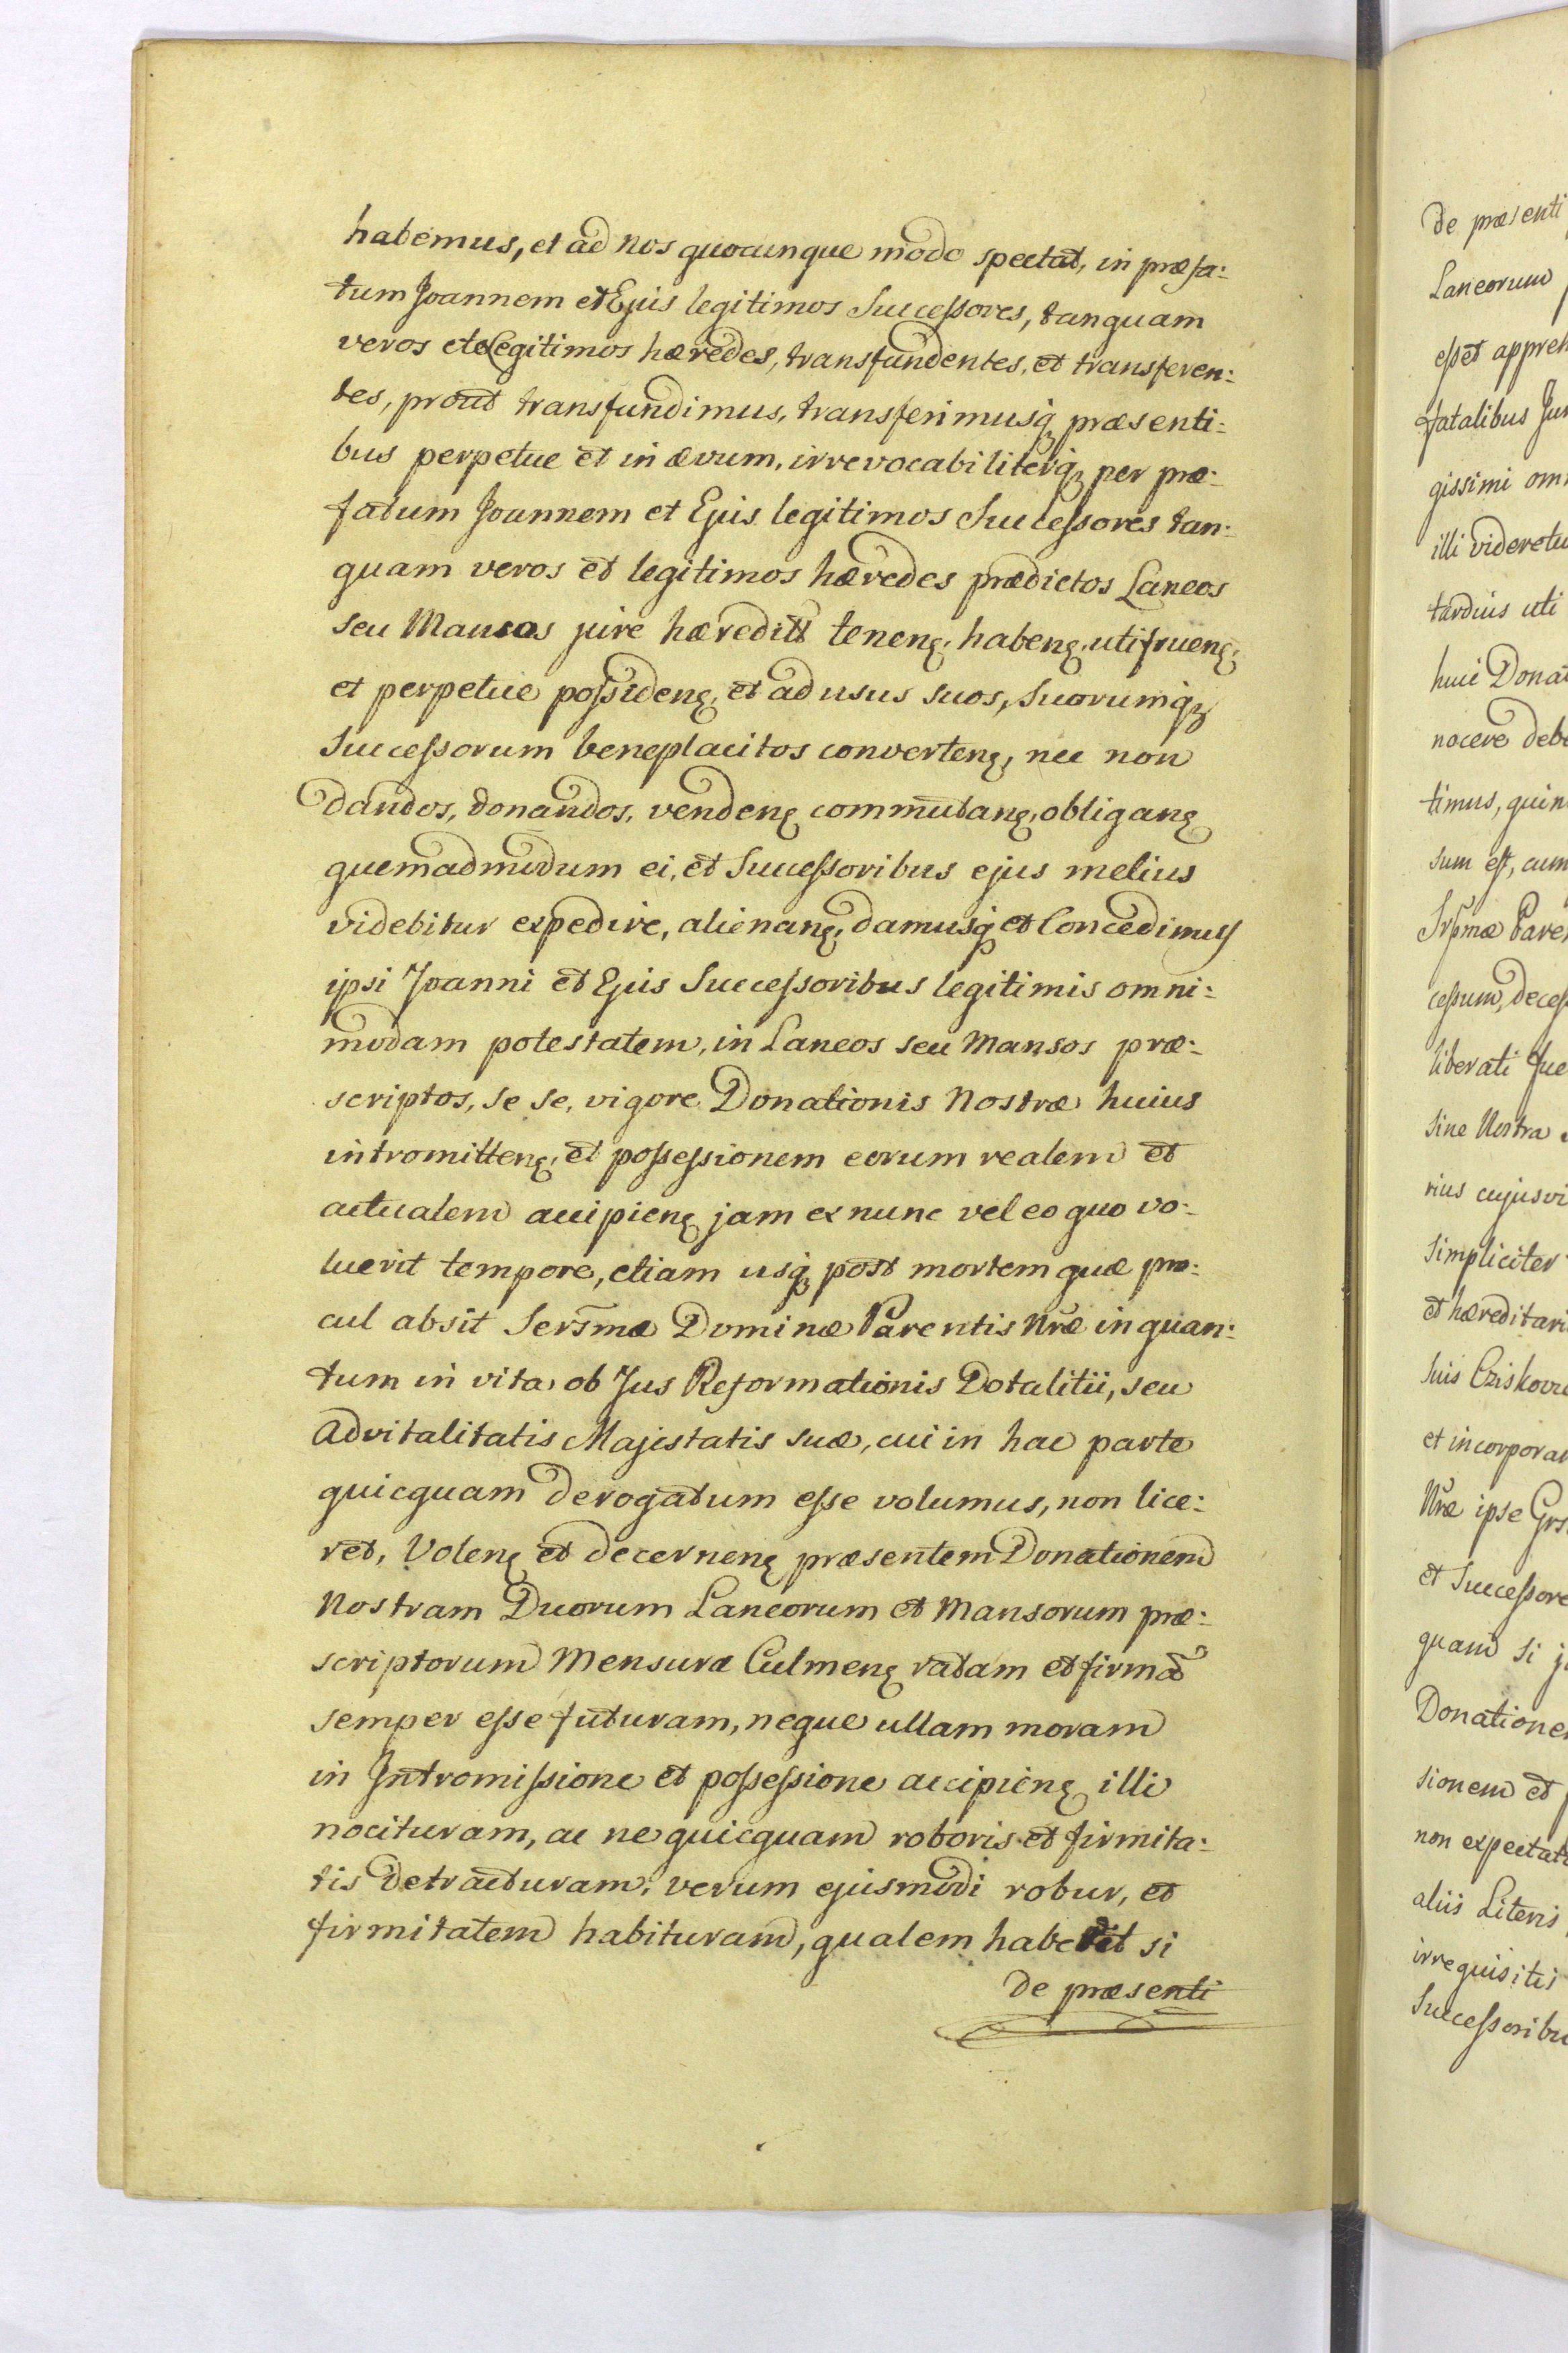 habemus, et ad nos quocunque modo spectat, in præfa:
tum Joannem et Ejus legitimos Successores, tanquam
veros et legitimos hæredes, transfundentes, et transferen:
tes, prout transfundimus, transferimusq, præsenti:
bus perpetue et in ævum, irrevocabiliterq, per præ:
fatum Joannem et Ejus legitimos Successores tan:
quam veros et legitimos hæredes prædictos Laneos
seu Mansos jure hæredit teneng, habeng, utifrueng,
et perpetue possideng, et ad usus suos, suorumq,
Successorum beneplacitos converteng, nec non
dandos, donandos, vendeng commutang, obligang
quemadmodum ei, et Successoribus ejus melius
videbitur expedire, alienang, damusq et Concedimus
ipsi Joanni et Ejus Successoribus legitimis omni:
modam potestatem, in Laneos seu Mansos præ:
scriptos, se se, vigore Donationis Nostræ huius
intromitteng, et possessionem eorum realem et
actualem accipieng jam ex nunc vel eo quo vo:
luerit tempore, etiam usq, post mortem quæ pro:
cul absit Sersmæ Dominæ Parentis Nræ in quan:
tum in vita ob Jus Reformationis Dotalitii, seu
Advitalitatis Majestatis suæ, cui in hac parte
quicquam derogatum esse volumus, non lice:
ret, Voleng et decerneng præsentem Donationem
Nostram Duorum Laneorum et Mansorum præ:
scriptorum Mensuræ Culmeng ratam et firmā
semper esse futuram, neque ullam moram
in Intromissione et possessione accipieng illi
nocituram, ac ne quicquam roboris et firmita:
tis detracturam, verum ejusmodi robur, et
firmitatem habituram, qualem si
de præsenti
de præsenti
Laneorum
esset
fatalibus
gissimi
illi
tardius uti
huic
nocere
timus,
sum est, cum
liberati
sine Nostra
simpliciter
suis
Nræ ipse
quam si
sionem et
aliis Literis
irrequisitis